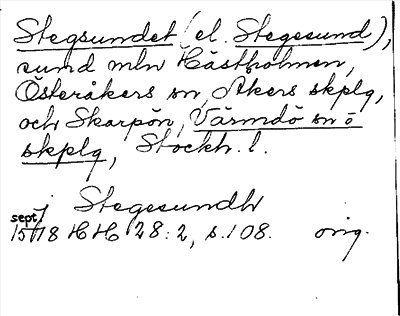 Stegsundet (el. Stegesund),
sund mln Hästholmen,
Österåkers sn, Åkers skplg,
och Skarpön, Värmdö sn o
skplg, Stockh. l.
j Stegesundh
sept.
1518 HH 28:2, s. 108. orig.